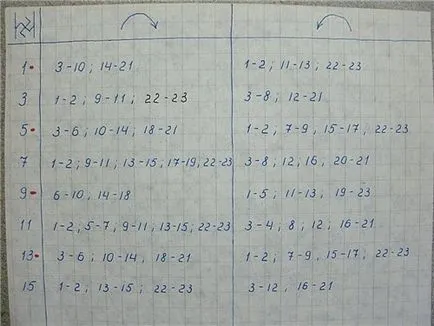 1 3-10; 14-21 1-2; 11-13; 22-23
3 1-2; 9-11; 22-23 3-8; 12-21
5 3-6; 10-14; 18-21 1-2, 7-9, 15-17, 22-23
7 1-2; 9-11; 13-15; 17-19, 22-23 3-8; 12, 16, 20-21
9 6-10, 14-18 1-5; 11-13, 19-23
11 1-2; 5-7; 9-11, 13-15; 22-23 3-4; 8; 12; 16-21
13 3-6; 10-14, 18-21 1-2; 7-9, 15-17, 22-23
15 1-2; 13-15; 22-23 3-12, 16-21